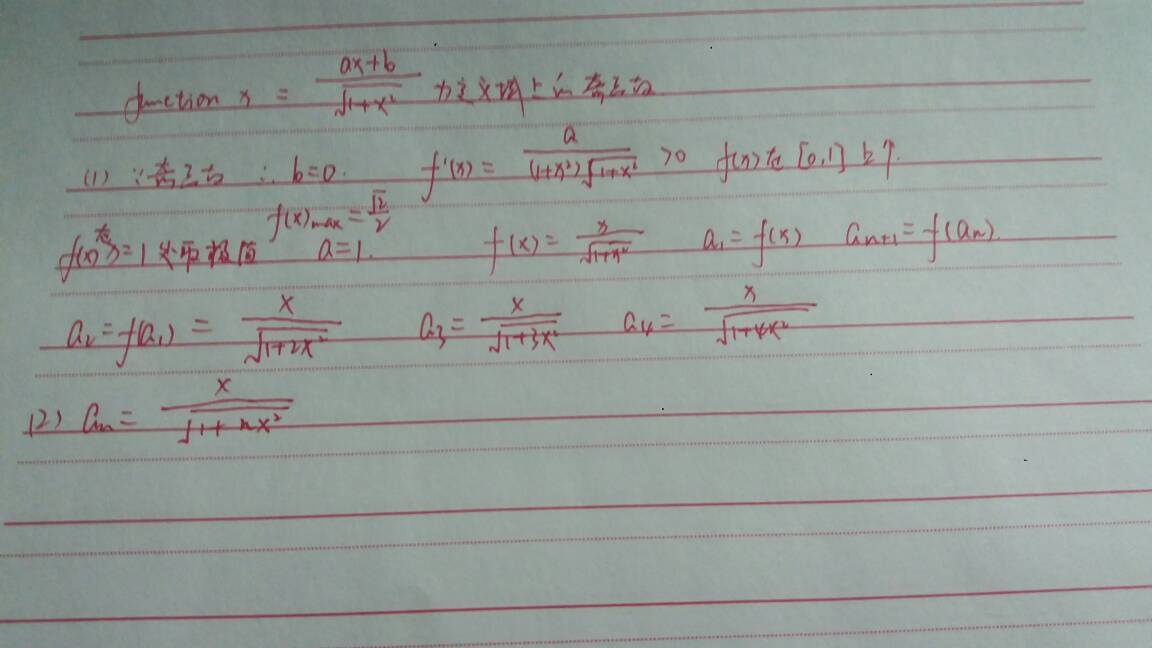 function x = \frac{ax+b}{\sqrt{1+x^2}} 为定义域上的奇函数
(1) ∵奇函数 ∴ b=0. f'(x) = \frac{a}{(1+x^2)\sqrt{1+x^2}} >0 f(x)在[0,1]上↑.
f(x)在x=1处取极值 f(x)max = \frac{\sqrt{2}}{2} a=1. f(x) = \frac{x}{\sqrt{1+x^2}} a_1 = f(x) a_{n+1} = f(a_n).
a_2 = f(a_1) = \frac{x}{\sqrt{1+2x^2}} a_3 = \frac{x}{\sqrt{1+3x^2}} a_4 = \frac{x}{\sqrt{1+4x^2}}
(2) a_n = \frac{x}{\sqrt{1+nx^2}}